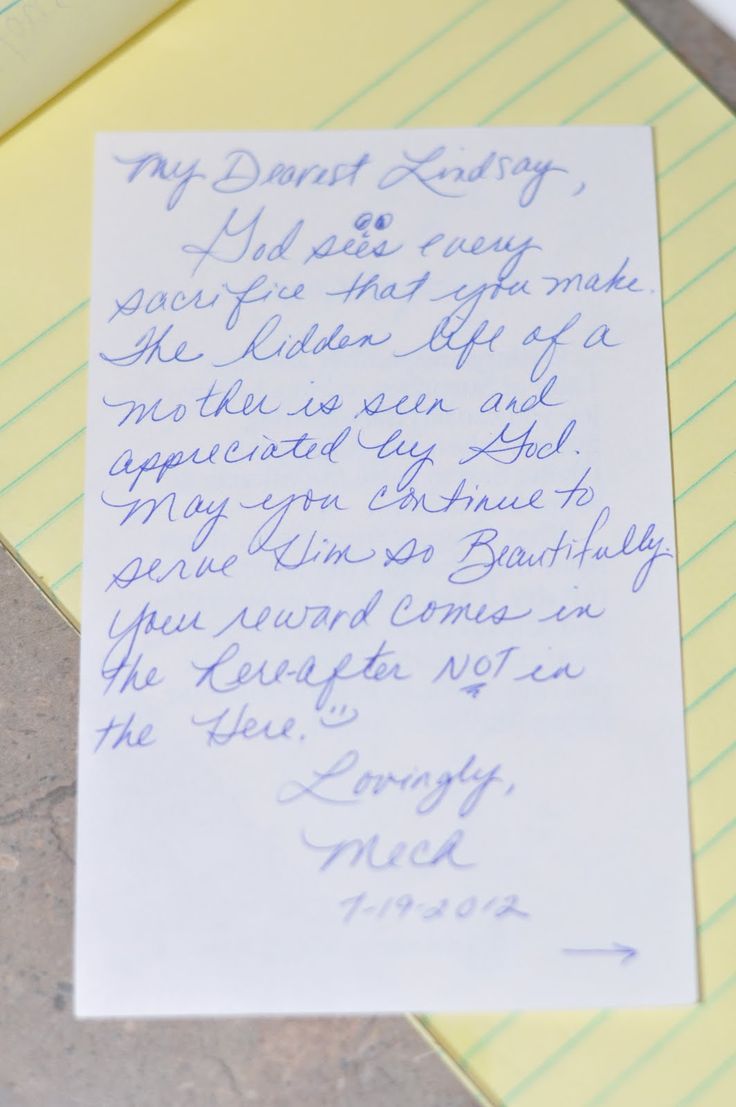 My Dearest Lindsay,
God sees every
sacrifice that you make.
The hidden life of a
mother is seen and
appreciated by God.
May you continue to
serve Him so Beautifully.
Your reward comes in
the here-after NOT in
the Here.
Lovingly,
7-19-2012